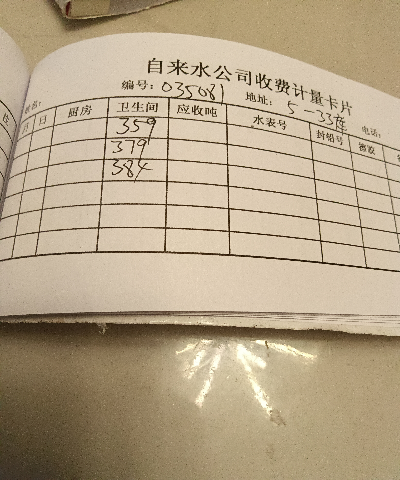 自来水公司收费计量卡片
编号：035081 地址：5-33座 电话：
姓名：
月 日 厨房 卫生间 应收吨 水表号 封铅号
359
379
384